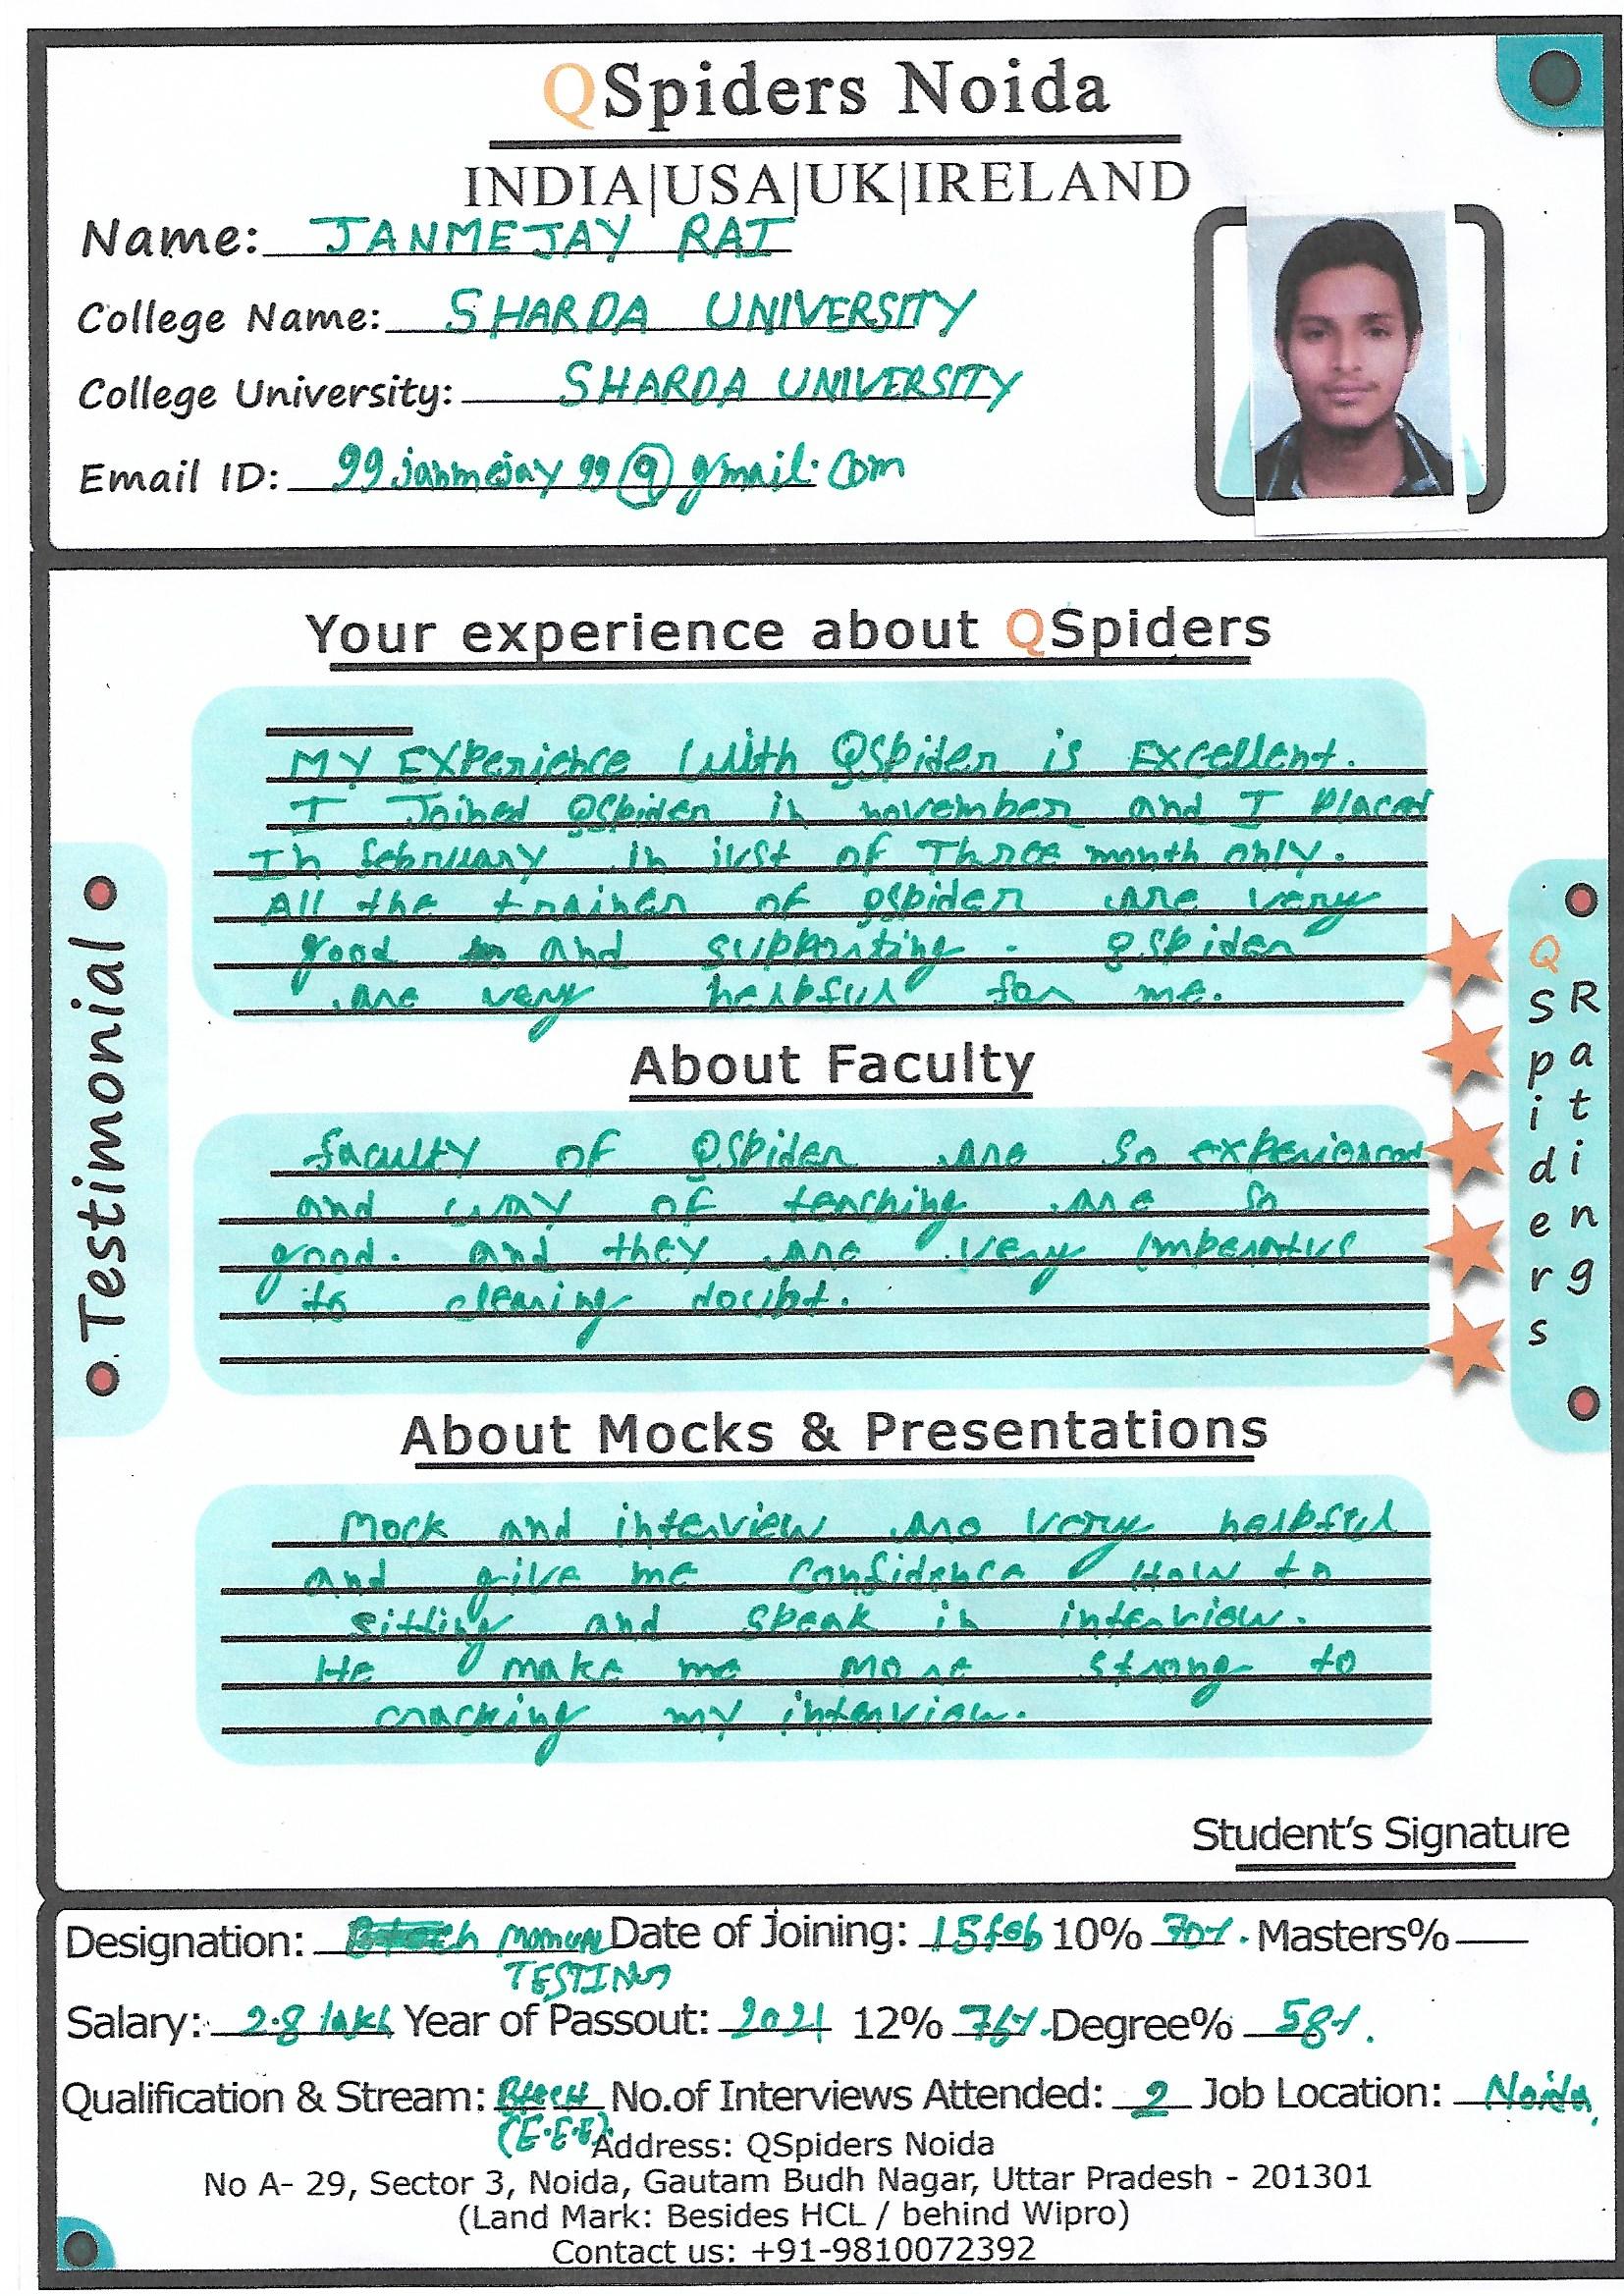 QSpiders Noida
INDIA|USA|UK|IRELAND
Name: JANMEJAY RAI
College Name: SHARDA UNIVERSITY
College University: SHARDA UNIVERSITY
Email ID: 99janmejay99@gmail.com
Your experience about QSpiders
MY EXPerience with QSpider is Excellent.
I Joined QSpider in november and I Placed
In february in just of Three month only.
All the trainer of QSpider are very
good and supporting. QSpider
are very helpful for me.
About Faculty
faculty of QSpider are so experienced
and way of teaching are so
good. and they are very imperative
to clearing doubt.
About Mocks & Presentations
Mock and interview are very helpful
and give me confidence How to
sitting and speak in interview.
He make me more strong to
cracking my interview.
Testimonial
QSpiders
Rating
Student's Signature
Designation: manual Date of Joining: 15 feb 10% 70%. Masters%
TESTING
Salary: 2.8 lakh Year of Passout: 2021 12% Degree% 58%.
Qualification & Stream: Btech No.of Interviews Attended: 2 Job Location: Noida
(E.E.E). Address: QSpiders Noida
No A- 29, Sector 3, Noida, Gautam Budh Nagar, Uttar Pradesh - 201301
(Land Mark: Besides HCL / behind Wipro)
Contact us: +91-9810072392